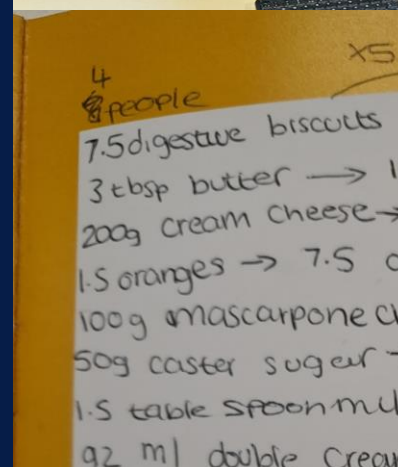 x5
4
people
7.5 digestive biscuits
3 tbsp butter →
200g cream cheese →
1.5 oranges → 7.5
100g mascarpone
50g caster sugar
1.5 table spoon
92 ml double